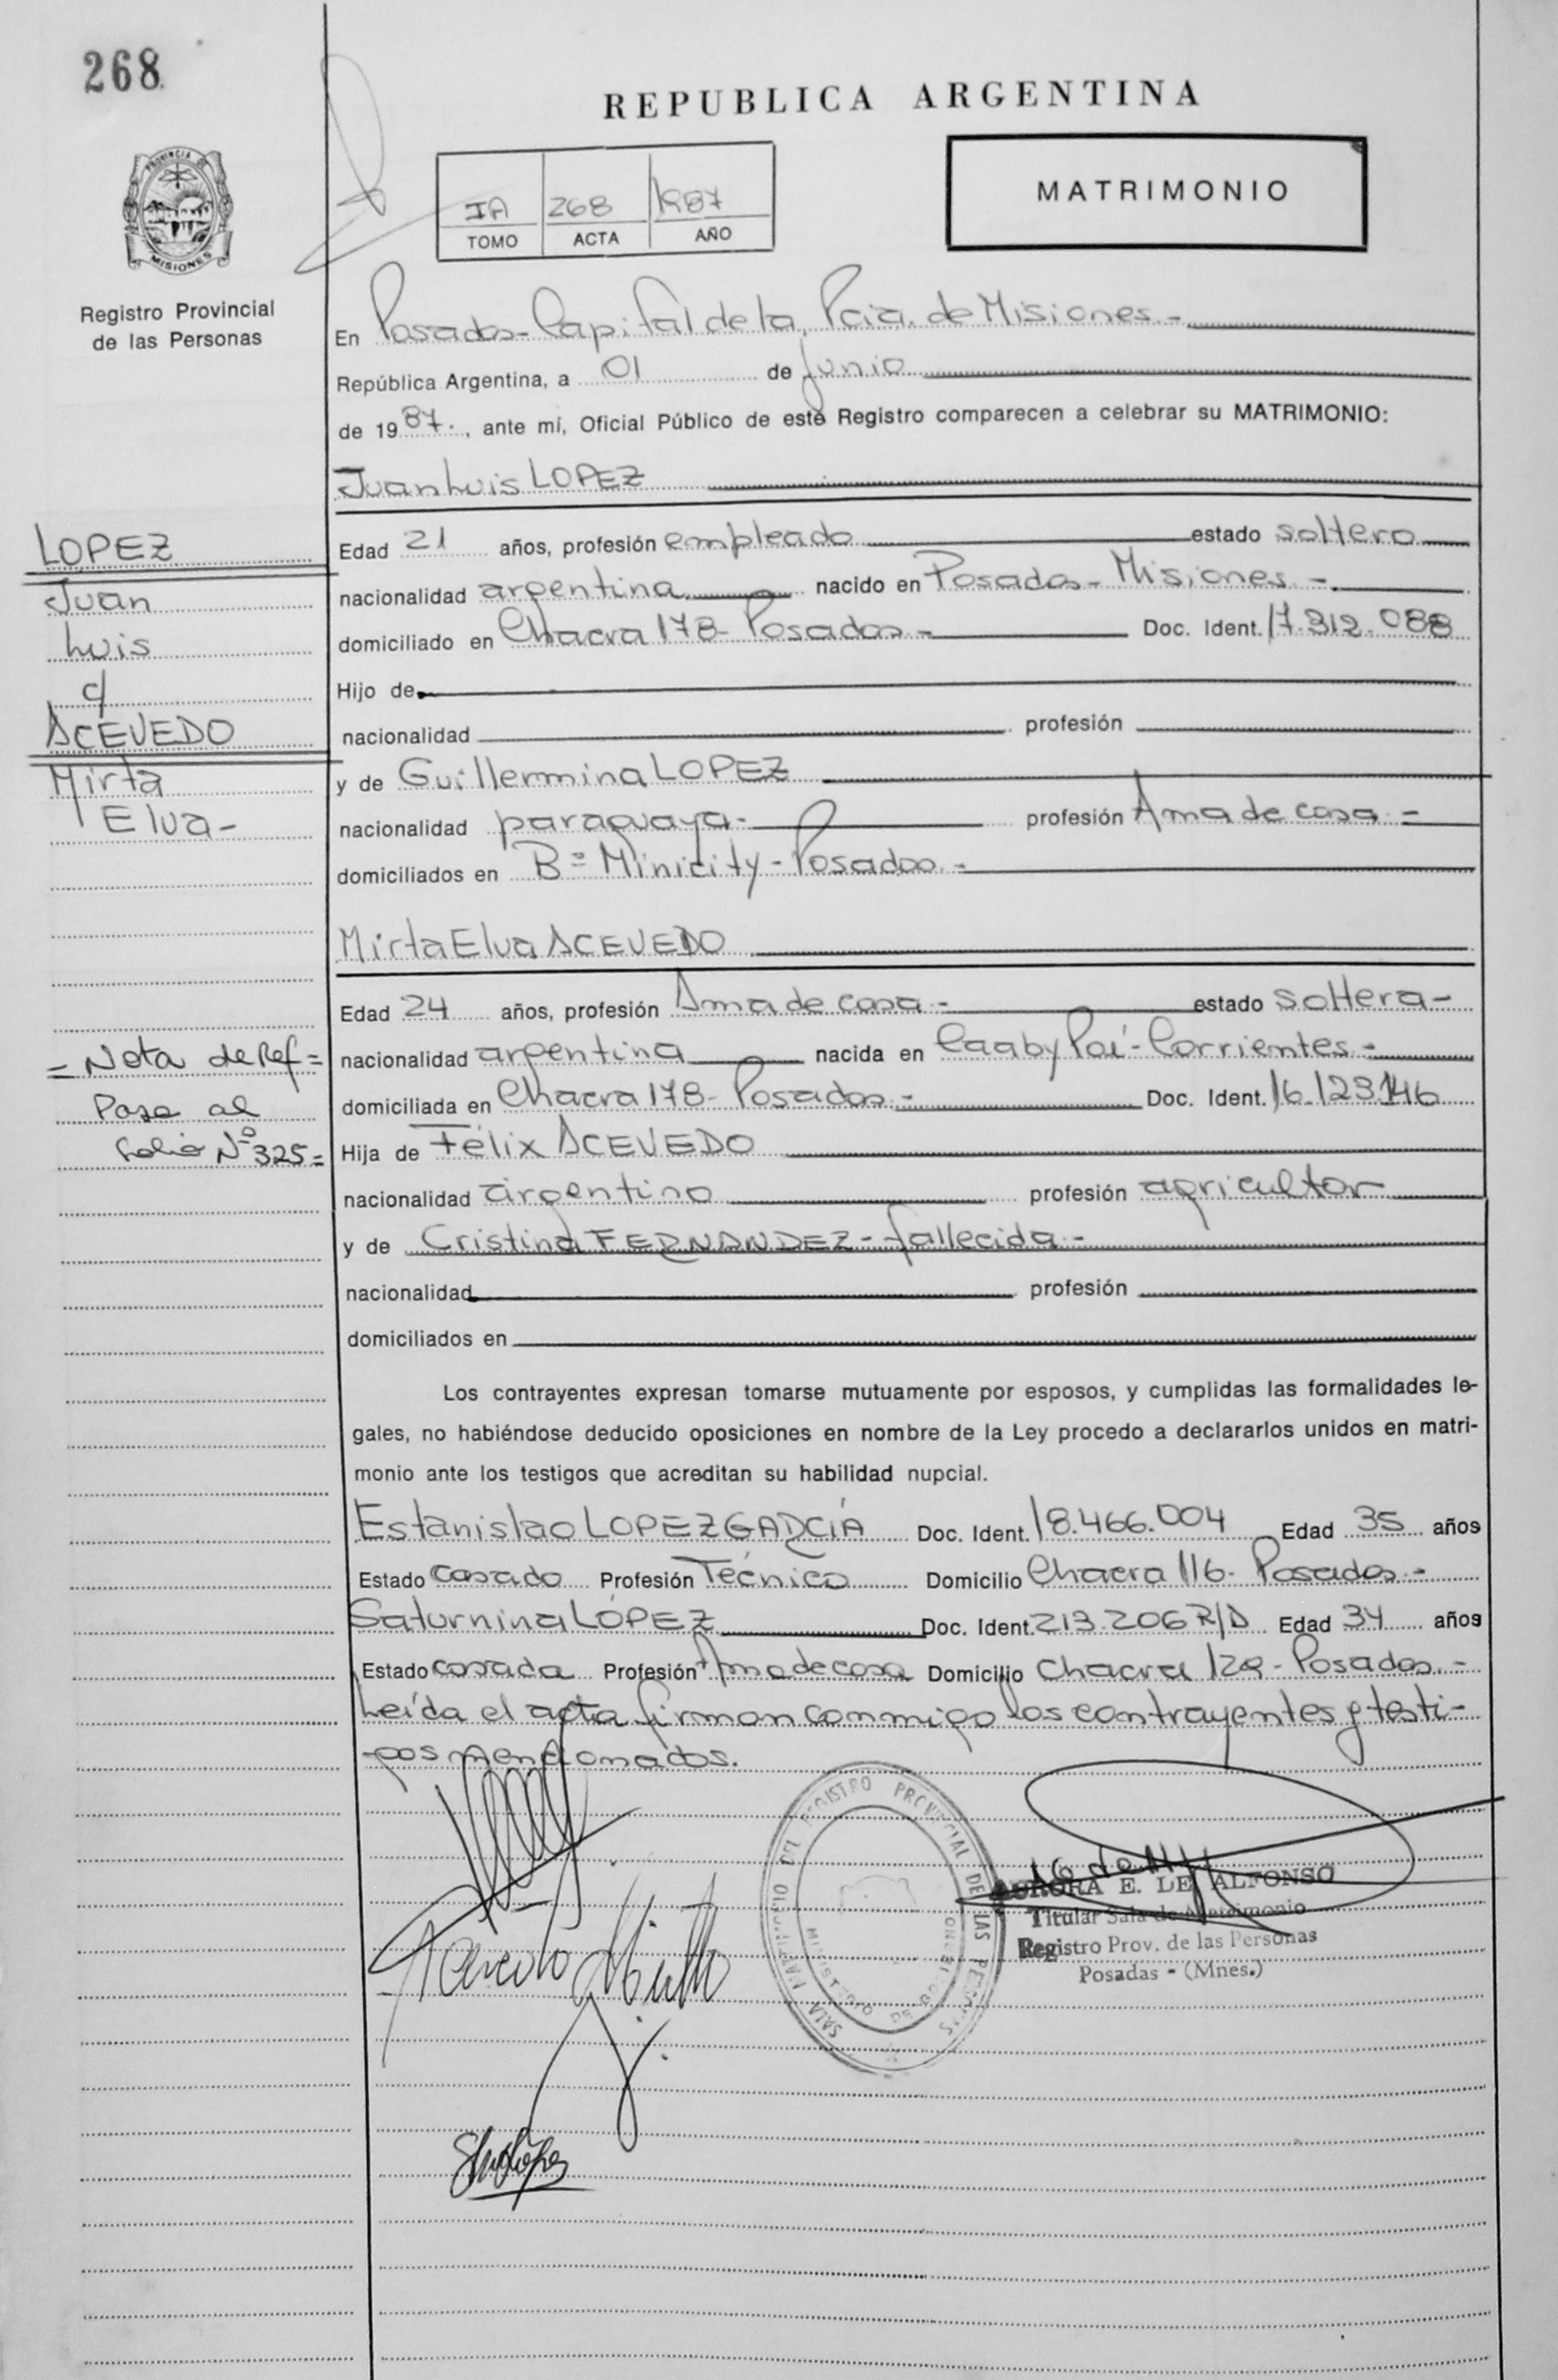 268
REPUBLICA ARGENTINA
PROVINCIA DE
MISIONES
Registro Provincial
de las Personas
IA 268 1987
TOMO ACTA AÑO
MATRIMONIO
En Posadas - Capital de la Pcia. de Misiones.-
República Argentina, a 01 de junio
de 1987., ante mí, Oficial Público de este Registro comparecen a celebrar su MATRIMONIO:
Juan Luis LOPEZ
LOPEZ
Juan
Luis
c/
ACEVEDO
Mirta
Elva-
Edad 21 años, profesión empleado estado soltero
nacionalidad argentina nacido en Posadas - Misiones -
domiciliado en Chacra 178- Posadas - Doc. Ident. 17.312.088
Hijo de
nacionalidad profesión
y de Guillermina LOPEZ
nacionalidad paraguaya- profesión Ama de casa -
domiciliados en B= Minicity - Posadas -
Mirta Elva ACEVEDO
Edad 24 años, profesión Ama de casa - estado soltera-
nacionalidad argentina nacida en Caaby Poí - Corrientes -
domiciliada en Chacra 178- Posadas.- Doc. Ident. 16.123.146
Hija de Félix ACEVEDO
nacionalidad argentino profesión agricultor
y de Cristina FERNANDEZ - fallecida -
nacionalidad profesión
domiciliados en
= Nota de Ref =
Pase al
folio Nº 325=
Los contrayentes expresan tomarse mutuamente por esposos, y cumplidas las formalidades le-
gales, no habiéndose deducido oposiciones en nombre de la Ley procedo a declararlos unidos en matri-
monio ante los testigos que acreditan su habilidad nupcial.
Estanislao LOPEZ GARCÍA Doc. Ident. 18.466.004 Edad 35 años
Estado casado Profesión Técnico Domicilio Chacra 116- Posadas -
Saturnina LÓPEZ Doc. Ident. 213.206 R/D Edad 34 años
Estado casada Profesión Ama de casa Domicilio Chacra 129 - Posadas.-
Leída el acta firman conmigo los contrayentes y testi-
-gos mencionados.
SALA MATRIMONIO DEL REGISTRO PROVINCIAL DE LAS PERSONAS
MINISTERIO DE GOBIERNO
AURORA E. DE ALFONSO
Titular Sala de Matrimonio
Registro Prov. de las Personas
Posadas - (Mnes.)
Acevedo Mirtha